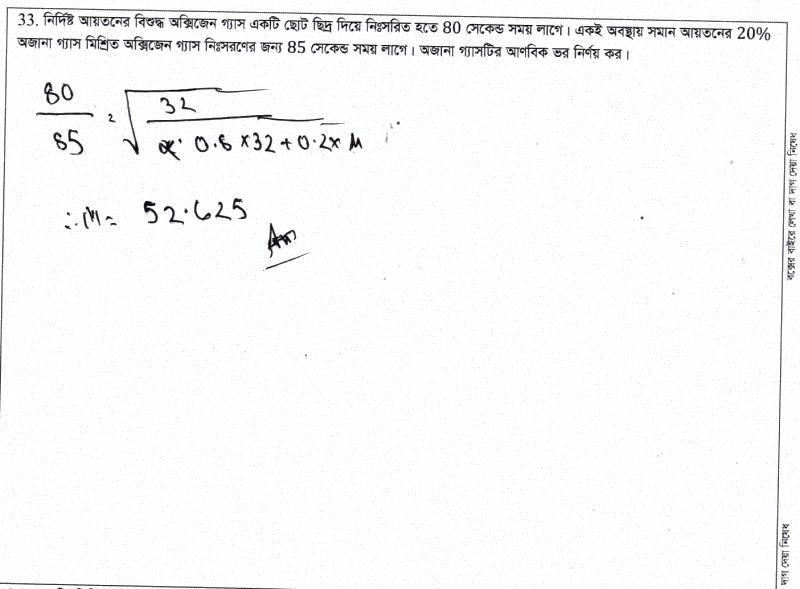 33. নির্দিষ্ট আয়তনের বিশুদ্ধ অক্সিজেন গ্যাস একটি ছোট ছিদ্র দিয়ে নিঃসরিত হতে 80 সেকেন্ড সময় লাগে। একই অবস্থায় সমান আয়তনের 20%
অজানা গ্যাস মিশ্রিত অক্সিজেন গ্যাস নিঃসরণের জন্য 85 সেকেন্ড সময় লাগে। অজানা গ্যাসটির আণবিক ভর নির্ণয় কর।
80/85 = √(32/(0.8 × 32 + 0.2 × M))
∴ M = 52.625
Ans
বক্সের বাইরে লেখা বা দাগ দেয়া নিষেধ
দাগ দেয়া নিষেধ